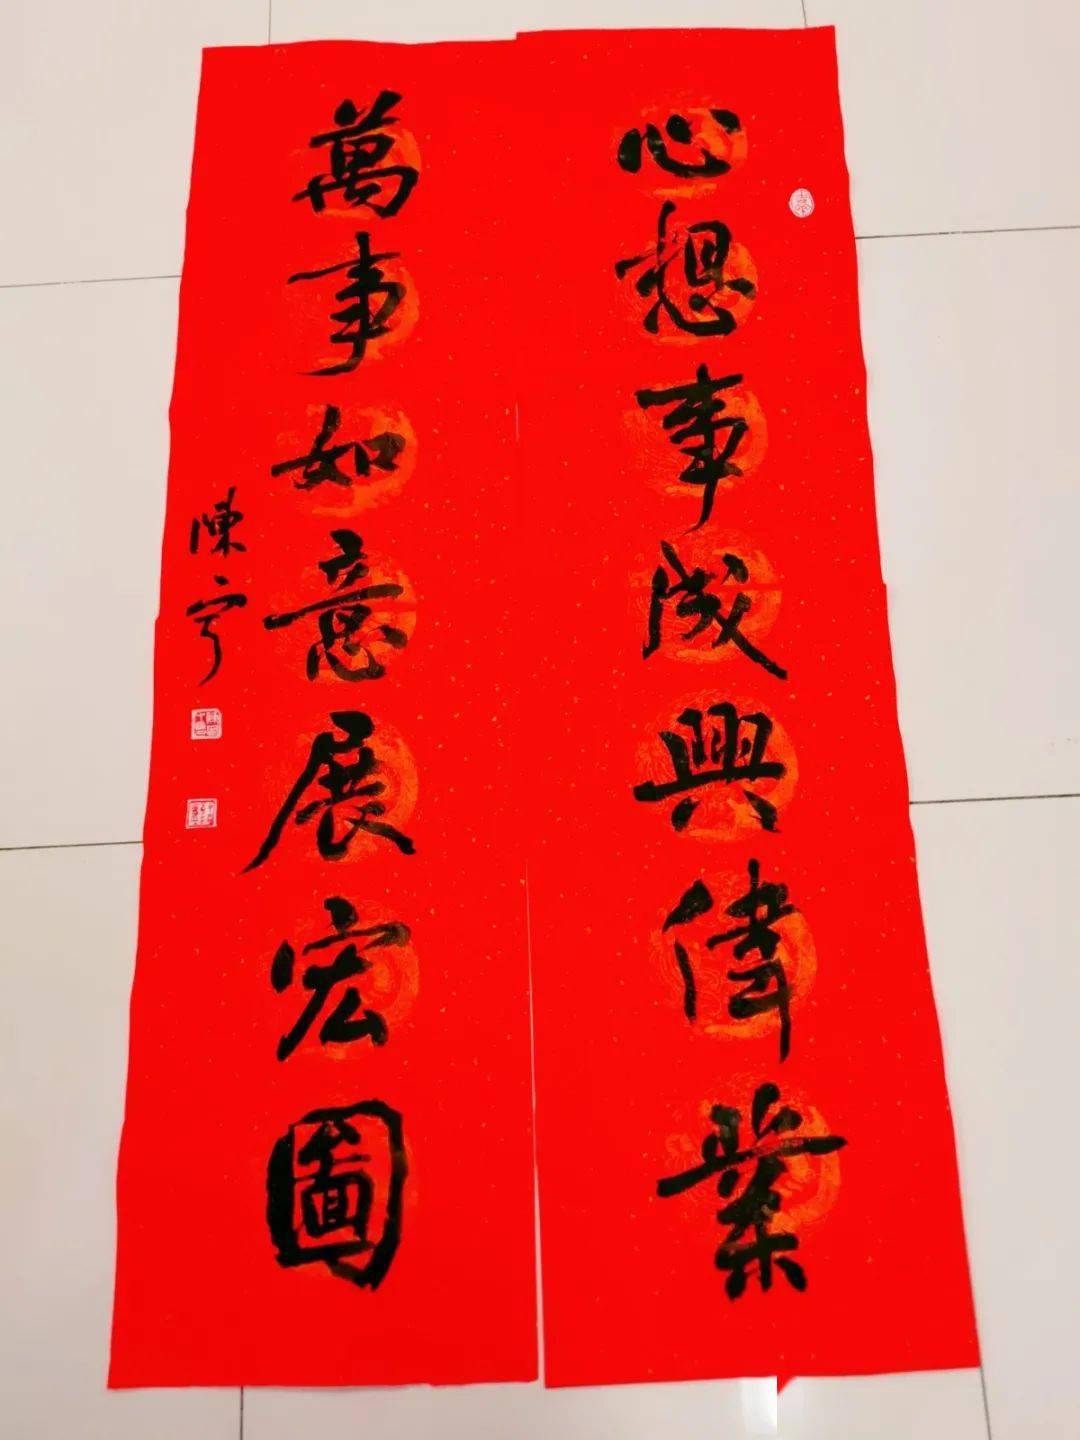 心想事成興偉業
萬事如意展宏圖
陳寧